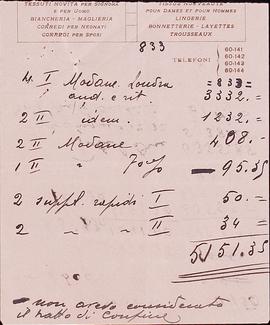 TESSUTI NOVITÀ PER SIGNORA
E PER UOMO
BIANCHERIA - MAGLIERIA
CORREDI PER NEONATI
CORREDI PER SPOSI
TISSUS NOUVEAUTÉ
POUR DAMES ET POUR HOMMES
LINGERIE
BONNETTERIE - LAYETTES
TROUSSEAUX
833
TELEFONI 60-141 60-142 60-143 60-144
4 I Modane Londra = 833=
and. e rit. 3332.=
2 II idem. 1232.=
2 II Modane 408.-
1 II " 95.35
2 suppl. rapidi I 50.=
2 " " II 34=
5151.35
- non avevo considerato
il tratto di confine